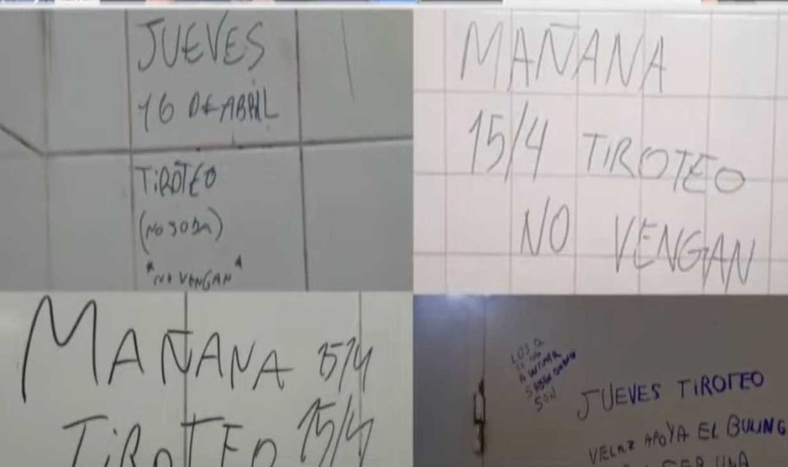 JUEVES
16 DE ABRIL
TIROTEO
(NO JODA)
"NO VENGAN"
MAÑANA
15/4 TIROTEO
NO VENGAN
MAÑANA 15/4
TIROTEO 15/4
LOS Q
SON
JUEVES TIROTEO
APOYA EL BULING